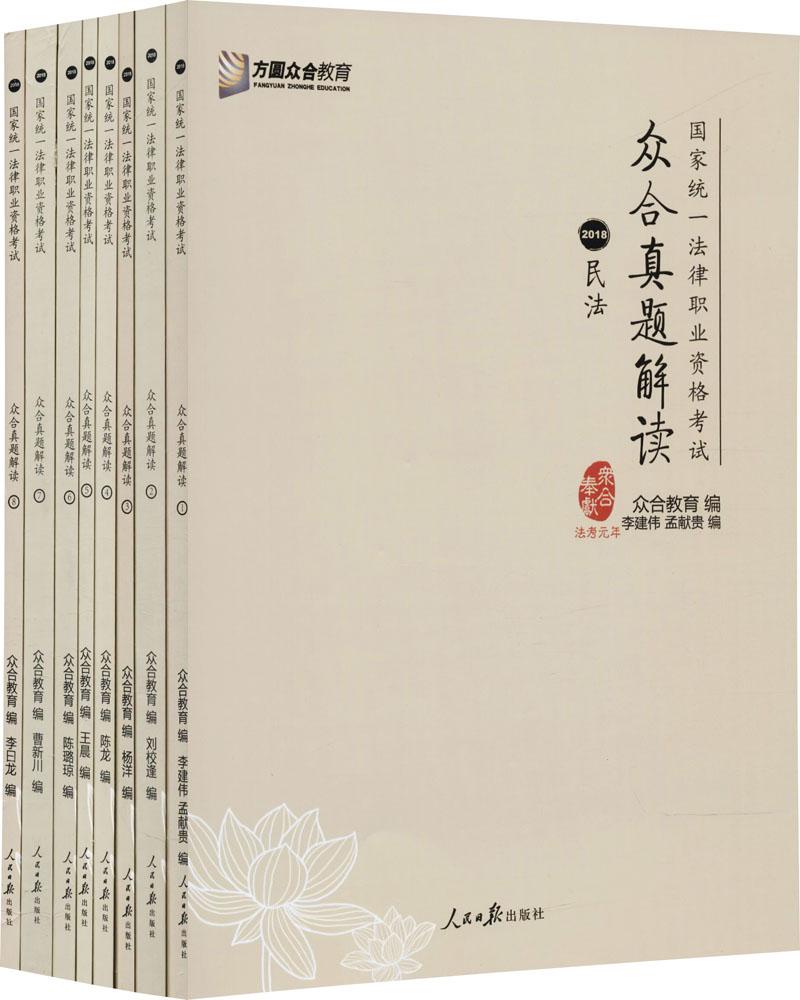 方圆众合教育
FANGYUAN ZHONGHE EDUCATION
国家统一法律职业资格考试
众合真题解读
2018
民法
眾合
奉獻
法考元年
众合教育 编
李建伟 孟献贵 编
人民日报出版社
2018 国家统一法律职业资格考试 众合真题解读 ⑧ 众合教育 编 李曰龙 编 人民日报出版社
2018 国家统一法律职业资格考试 众合真题解读 ⑦ 众合教育 编 曹新川 编 人民日报出版社
2018 国家统一法律职业资格考试 众合真题解读 ⑥ 众合教育 编 陈璐琼 编 人民日报出版社
2018 国家统一法律职业资格考试 众合真题解读 ⑤ 众合教育 编 王晨 编 人民日报出版社
2018 国家统一法律职业资格考试 众合真题解读 ④ 众合教育 编 陈龙 编 人民日报出版社
2018 国家统一法律职业资格考试 众合真题解读 ③ 众合教育 编 杨洋 编 人民日报出版社
2018 国家统一法律职业资格考试 众合真题解读 ② 众合教育 编 刘校逢 编 人民日报出版社
2018 国家统一法律职业资格考试 众合真题解读 ① 众合教育 编 李建伟 孟献贵 编 人民日报出版社